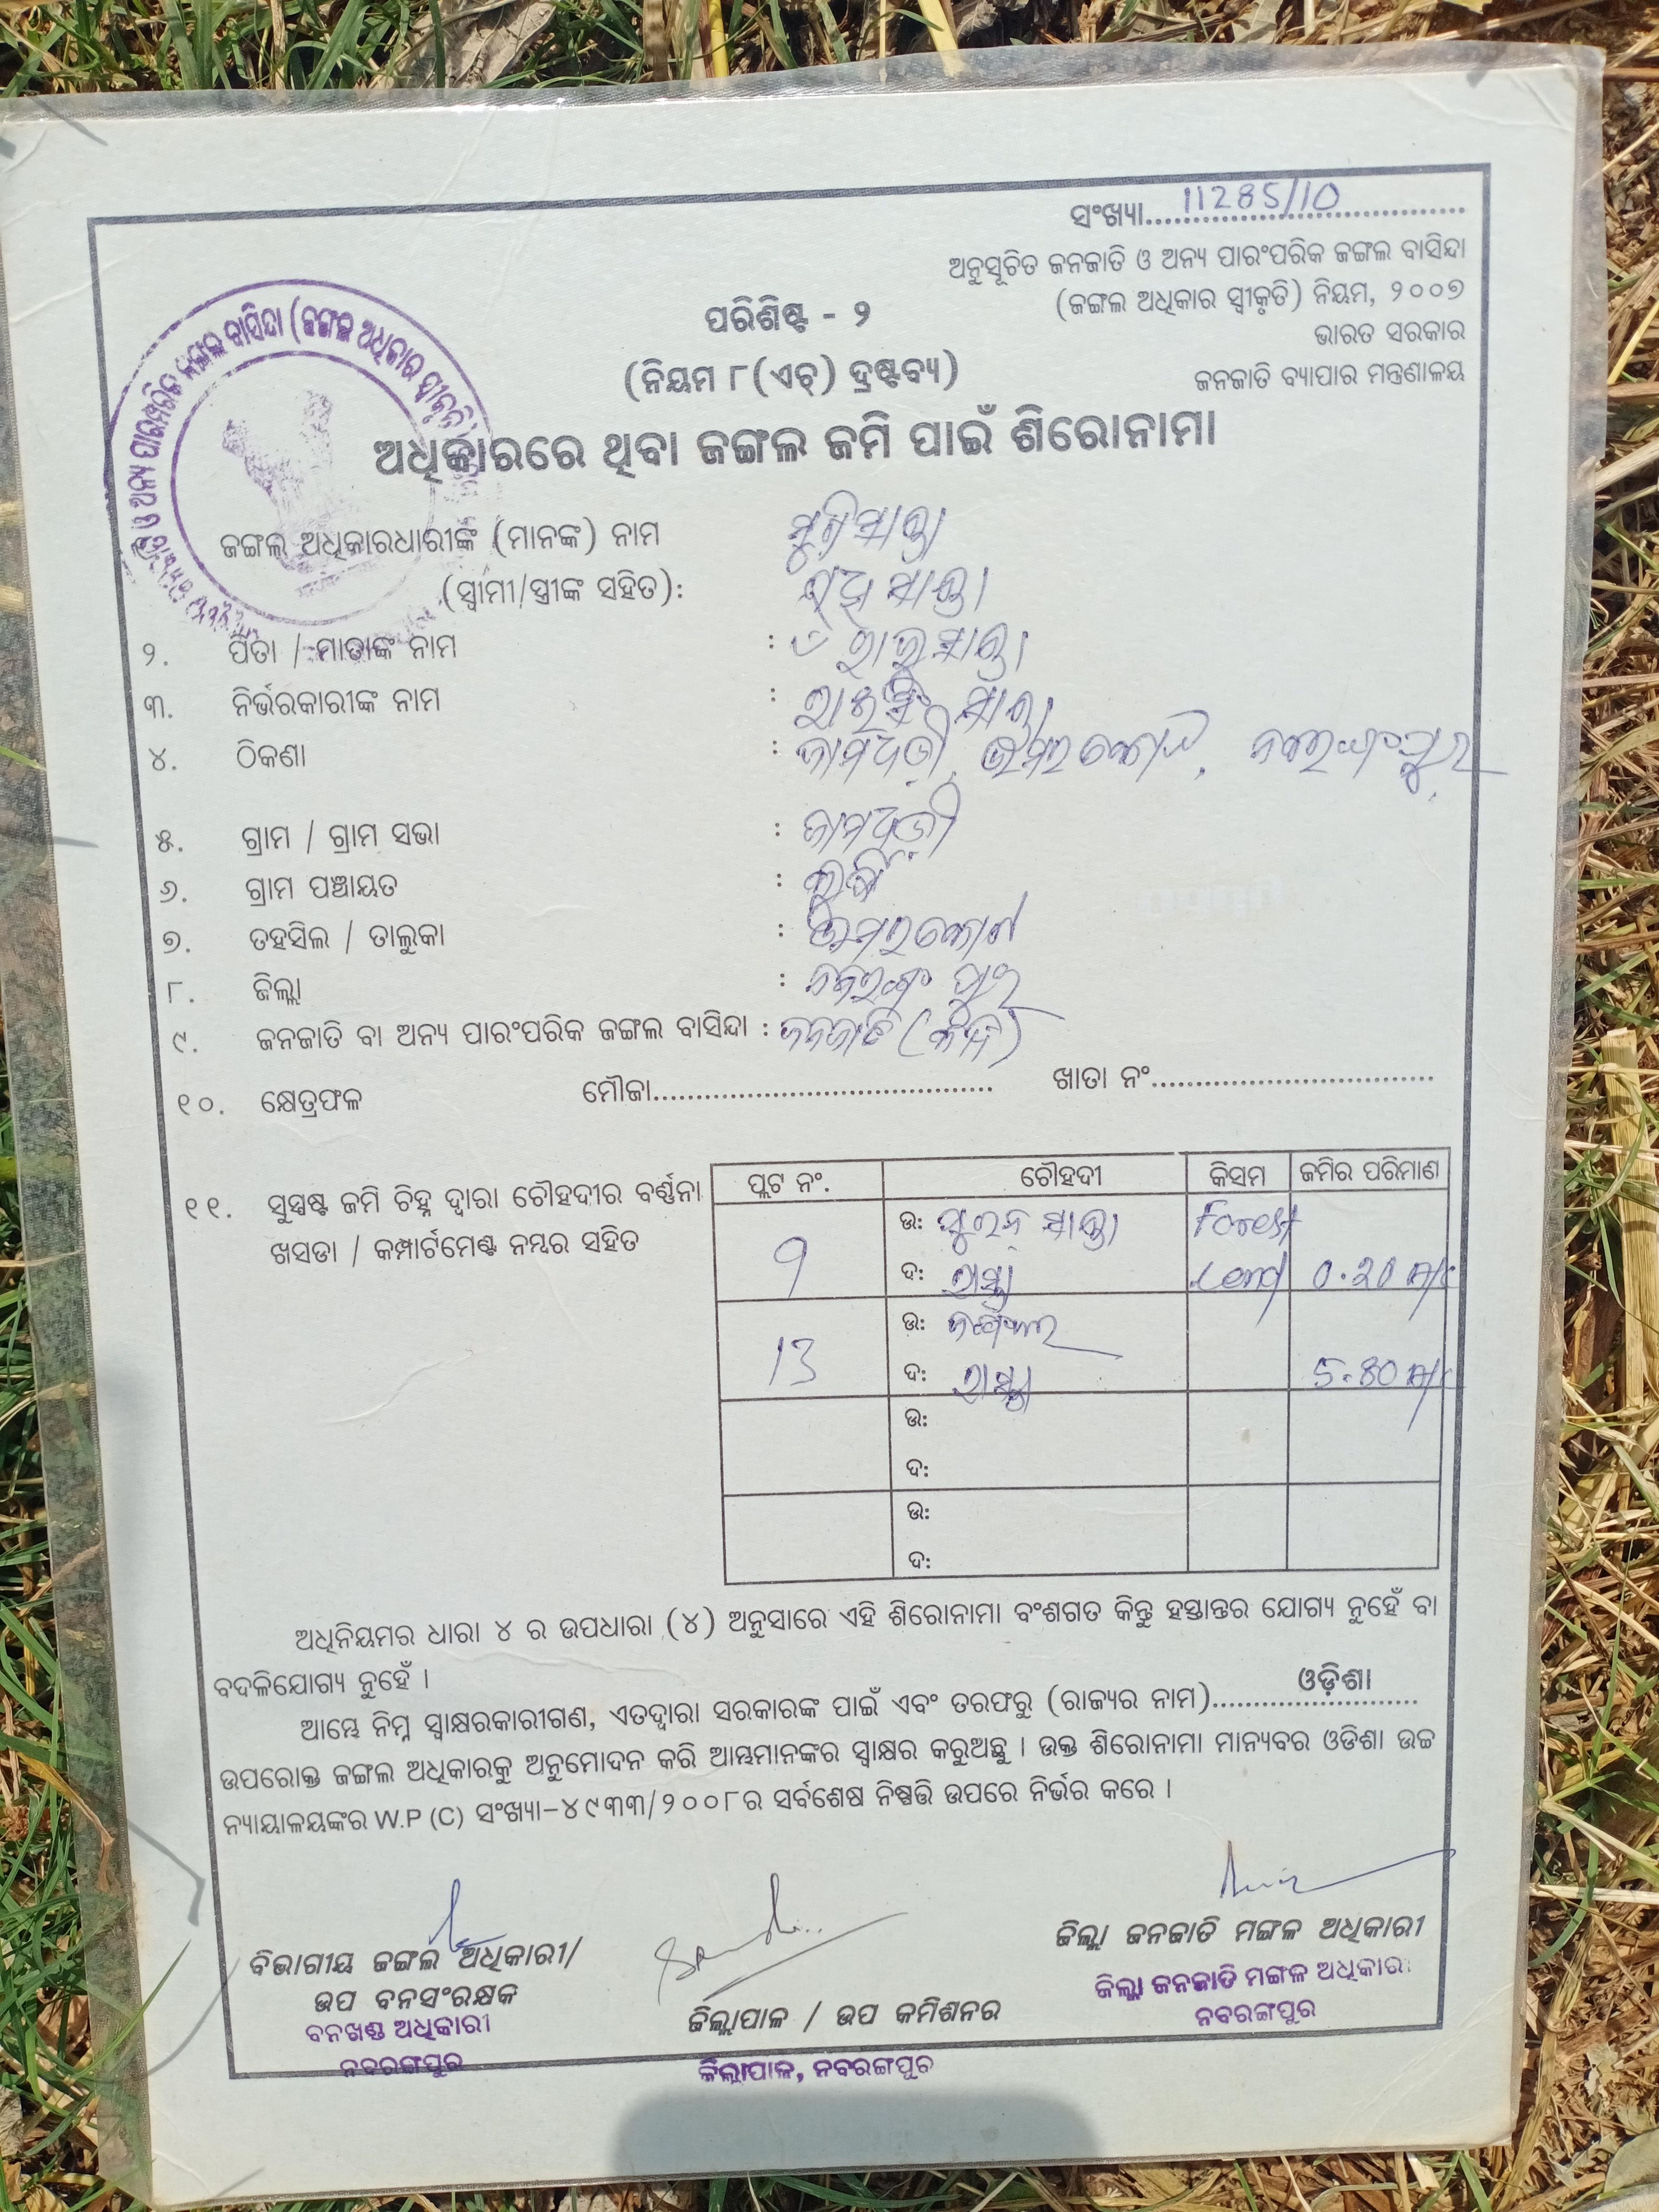 ସଂଖ୍ୟା..... 11285/10
ଅନୁସୂଚିତ ଜନଜାତି ଓ ଅନ୍ୟ ପାରଂପରିକ ଜଙ୍ଗଲ ବାସିନ୍ଦା
(ଜଙ୍ଗଲ ଅଧିକାର ସ୍ୱୀକୃତି) ନିୟମ, ୨୦୦୭
ଭାରତ ସରକାର
ଜନଜାତି ବ୍ୟାପାର ମନ୍ତ୍ରଣାଳୟ
ପରିଶିଷ୍ଟ - ୨
(ନିୟମ ୮(ଏଚ୍) ଦ୍ରଷ୍ଟବ୍ୟ)
ଅଧିକାରରେ ଥିବା ଜଙ୍ଗଲ ଜମି ପାଇଁ ଶିରୋନାମା
ଜଙ୍ଗଲ ଅଧିକାରଧାରୀଙ୍କ (ମାନଙ୍କ) ନାମ
(ସ୍ୱାମୀ/ସ୍ତ୍ରୀଙ୍କ ସହିତ):
୨. ପିତା / ମାତାଙ୍କ ନାମ :
୩. ନିର୍ଭରକାରୀଙ୍କ ନାମ :
୪. ଠିକଣା : ଉମରକୋଟ, ନବରଙ୍ଗପୁର
୫. ଗ୍ରାମ / ଗ୍ରାମ ସଭା :
୬. ଗ୍ରାମ ପଞ୍ଚାୟତ :
୭. ତହସିଲ / ତାଲୁକା : ଉମରକୋଟ
୮. ଜିଲ୍ଲା : ନବରଙ୍ଗପୁର
୯. ଜନଜାତି ବା ଅନ୍ୟ ପାରଂପରିକ ଜଙ୍ଗଲ ବାସିନ୍ଦା : ଜନଜାତି
୧୦. କ୍ଷେତ୍ରଫଳ ମୌଜା..... ଖାତା ନଂ.....
୧୧. ସୁସ୍ପଷ୍ଟ ଜମି ଚିହ୍ନ ଦ୍ୱାରା ଚୌହଦୀର ବର୍ଣ୍ଣନା
ଖସଡା / କମ୍ପାର୍ଟମେଣ୍ଟ ନମ୍ବର ସହିତ
ପ୍ଲଟ ନଂ. ଚୌହଦୀ କିସମ ଜମିର ପରିମାଣ
ଉ: Forest
9 ଦ: ରାସ୍ତା Land 0.20 A/c
ଉ:
13 ଦ: ରାସ୍ତା 5.80 A/c
ଉ:
ଦ:
ଉ:
ଦ:
ଅଧିନିୟମର ଧାରା ୪ ର ଉପଧାରା (୪) ଅନୁସାରେ ଏହି ଶିରୋନାମା ବଂଶଗତ କିନ୍ତୁ ହସ୍ତାନ୍ତର ଯୋଗ୍ୟ ନୁହେଁ ବା
ବଦଳିଯୋଗ୍ୟ ନୁହେଁ ।
ଆମ୍ଭେ ନିମ୍ନ ସ୍ୱାକ୍ଷରକାରୀଗଣ, ଏତଦ୍ୱାରା ସରକାରଙ୍କ ପାଇଁ ଏବଂ ତରଫରୁ (ରାଜ୍ୟର ନାମ)..... ଓଡ଼ିଶା
ଉପରୋକ୍ତ ଜଙ୍ଗଲ ଅଧିକାରକୁ ଅନୁମୋଦନ କରି ଆମ୍ଭମାନଙ୍କର ସ୍ୱାକ୍ଷର କରୁଅଛୁ । ଉକ୍ତ ଶିରୋନାମା ମାନ୍ୟବର ଓଡିଶା ଉଚ୍ଚ
ନ୍ୟାୟାଳୟଙ୍କର W.P (C) ସଂଖ୍ୟା-୪୯୩୩/୨୦୦୮ର ସର୍ବଶେଷ ନିଷ୍ପତ୍ତି ଉପରେ ନିର୍ଭର କରେ ।
ବିଭାଗୀୟ ଜଙ୍ଗଲ ଅଧିକାରୀ/
ଉପ ବନସଂରକ୍ଷକ
ବନଖଣ୍ଡ ଅଧିକାରୀ
ନବରଙ୍ଗପୁର
ଜିଲ୍ଲାପାଳ / ଉପ କମିଶନର
ଜିଲ୍ଲାପାଳ, ନବରଙ୍ଗପୁର
ଜିଲ୍ଲା ଜନଜାତି ମଙ୍ଗଳ ଅଧିକାରୀ
ଜିଲ୍ଲା ଜନଜାତି ମଙ୍ଗଳ ଅଧିକାରୀ
ନବରଙ୍ଗପୁର